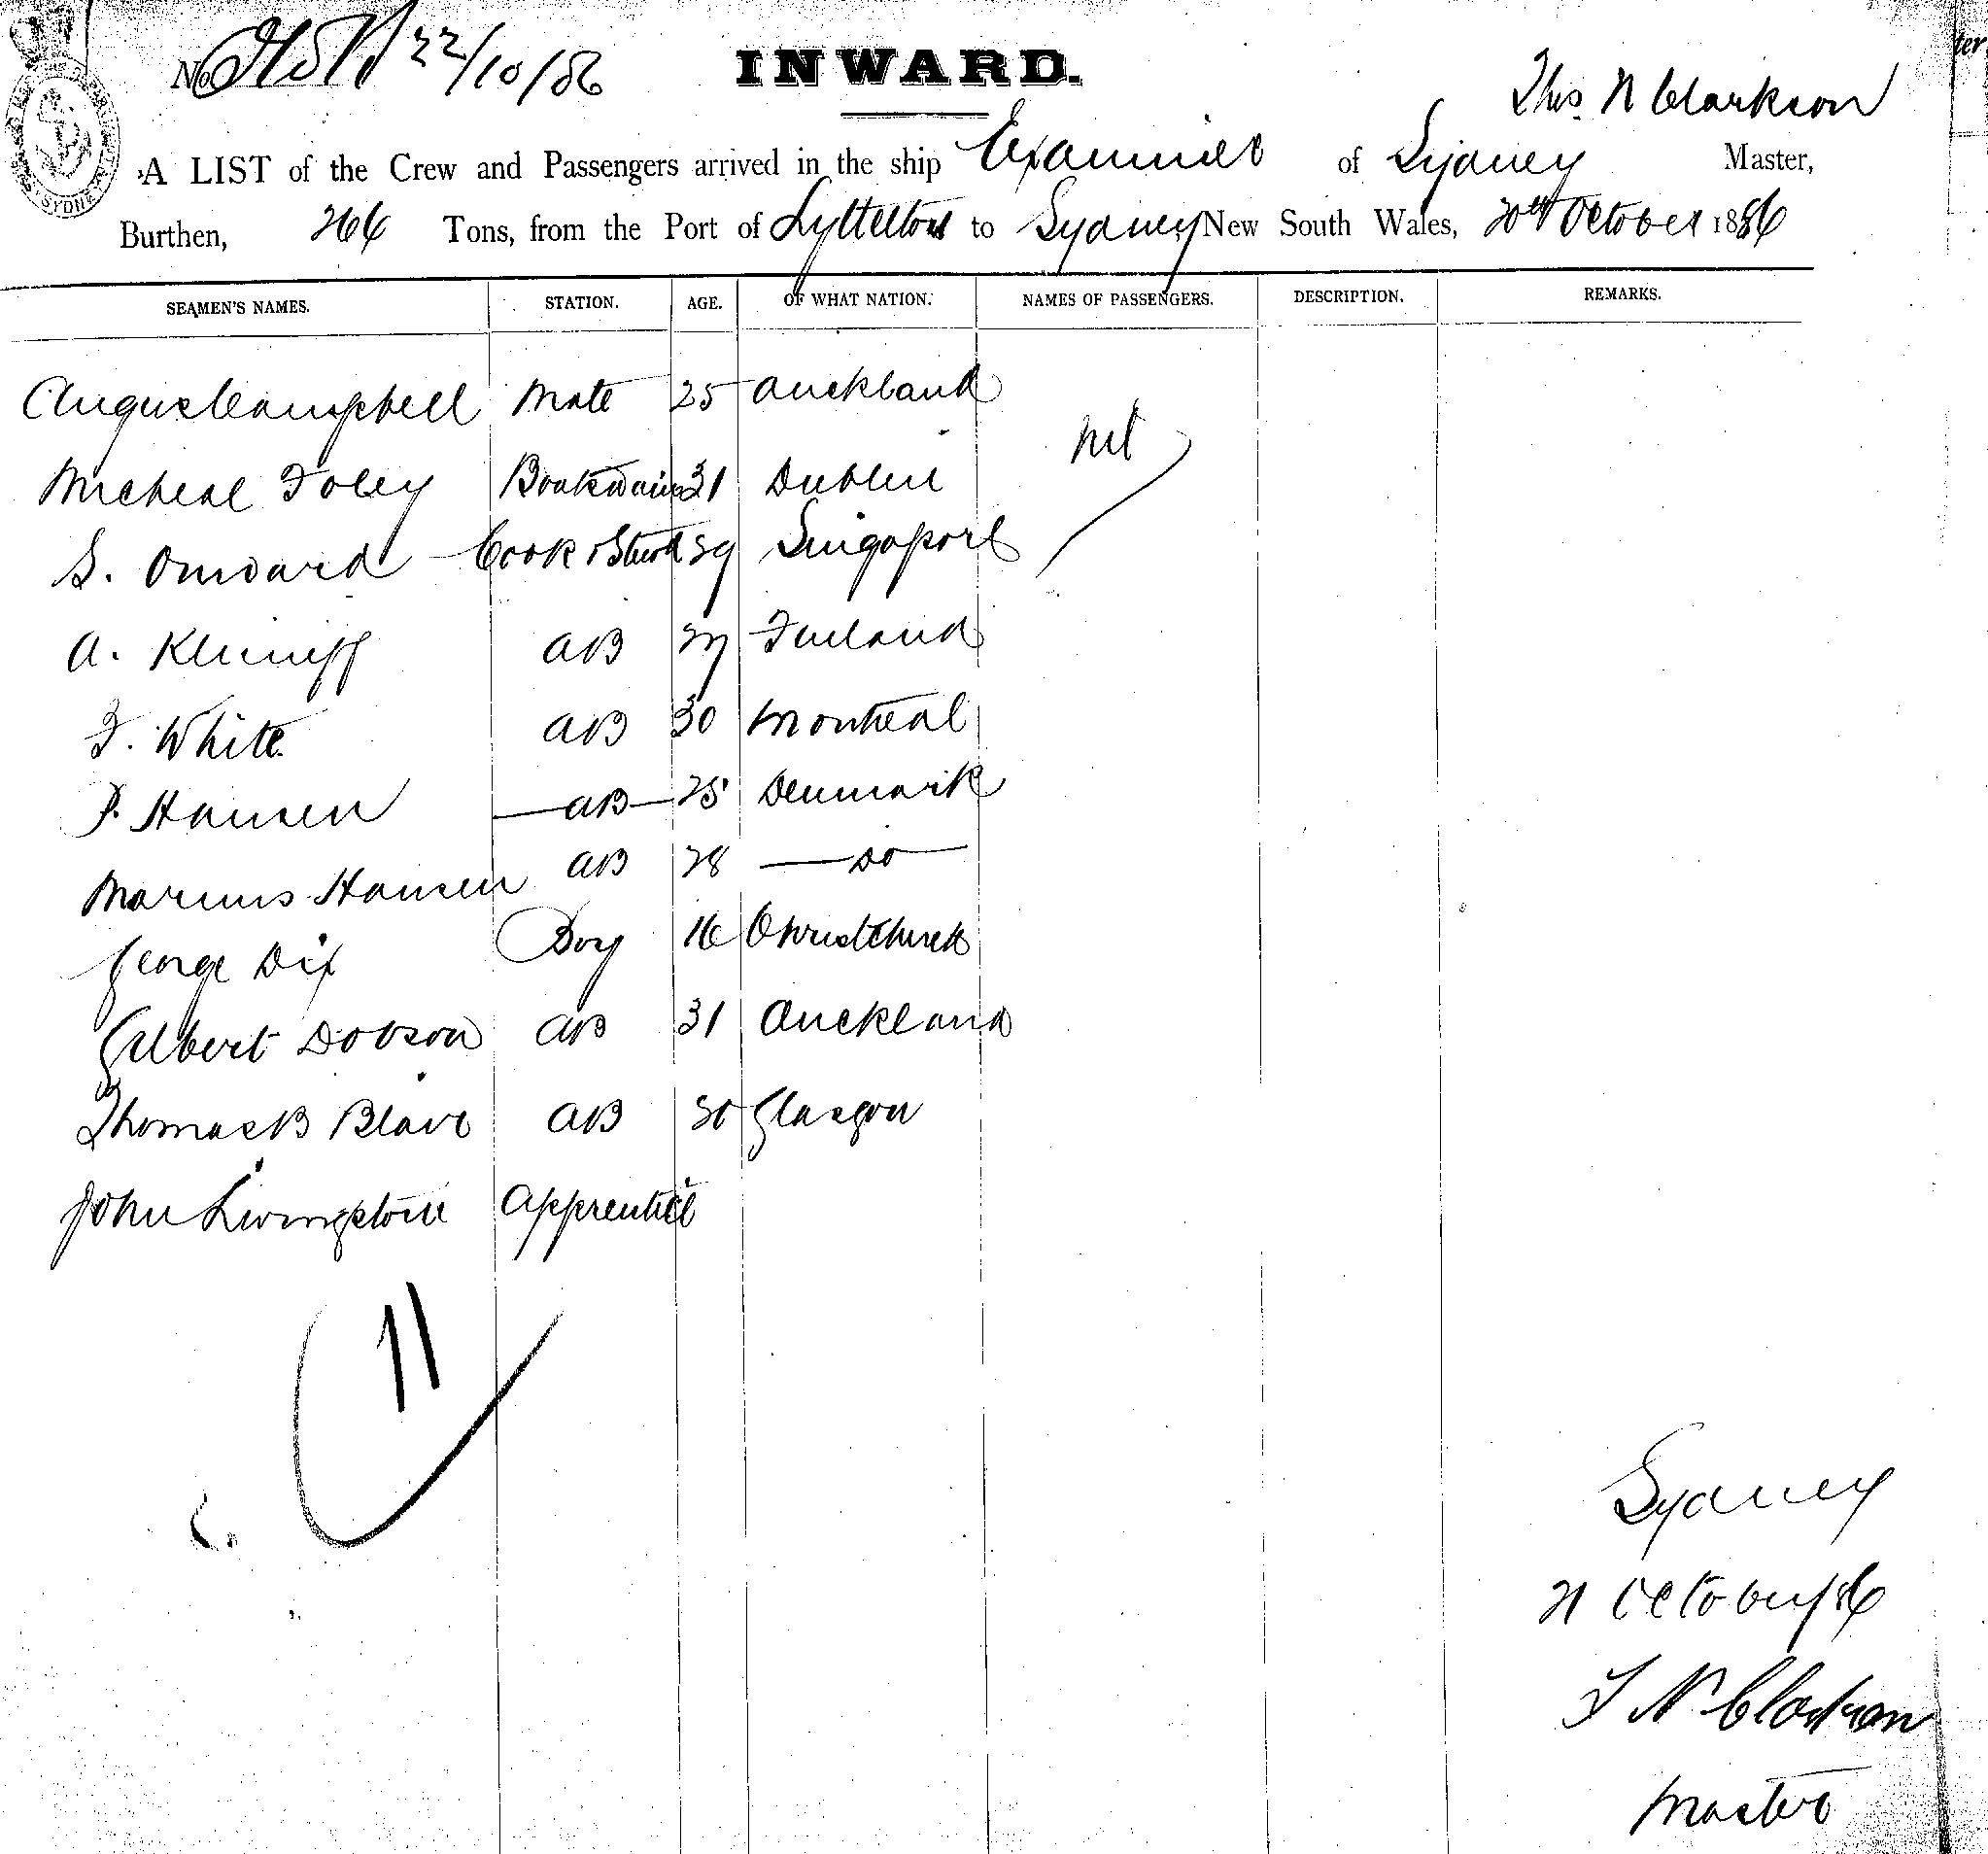 No 22/10/86
INWARD.
Thos. N Clarkson
A LIST of the Crew and Passengers arrived in the ship Examiner of Sydney Master,
Burthen, 266 Tons, from the Port of Lyttelton to Sydney, New South Wales, 20th October 1886
SEAMEN'S NAMES. STATION. AGE. OF WHAT NATION. NAMES OF PASSENGERS. DESCRIPTION. REMARKS.
Angus Campbell Mate 25 Auckland
Nil
Micheal Foley Boatswain 31 Dublin
S. Onward Cook & Stwd 39 Singapore
A. AB Finland
F. White AB 30 Montreal
P. Hansen AB 25 Denmark
Marinus Hansen AB 28 Do
George Dix Boy 16 Christchurch
Gilbert Dobson AB 31 Auckland
Thomas B Blair AB 30 Glasgow
John Livingstone Apprentice
11
Sydney
21 October/86
T N Clarkson
Master